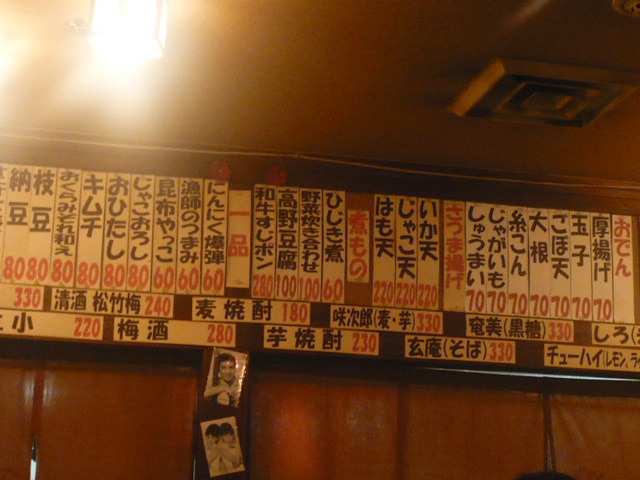 おでん
厚揚げ 70
玉子 70
ごぼ天 70
大根 70
糸こん 70
じゃがいも 70
しゅうまい 70
さつま揚げ
いか天 220
じゃこ天 220
はも天 220
煮もの
ひじき煮 60
野菜炊き合わせ 100
高野豆腐 100
和牛すじポン 280
一品
にんにく爆弾 60
漁師のつまみ 60
昆布やっこ 60
じゃこおろし 80
おひたし 80
キムチ 80
おくらみぞれ和え 80
枝豆 80
納豆 80
330
清酒 松竹梅 240
麦焼酎 180
咲次郎(麦・芋) 330
奄美(黒糖) 330
しろ
小 220
梅酒 280
芋焼酎 230
玄庵(そば) 330
チューハイ(レモン、ライ